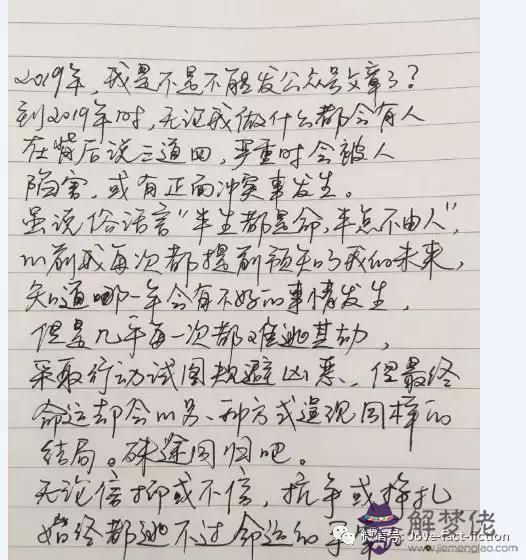 2019年，我是不是不能发公众号文章了？
到2019年时，无论我做什么都会有人
在背后说三道四，严重时会被人
陷害，或有正面冲突事发生。
虽说俗话言“半生都是命，半点不由人”，
以前我每次都提前预知了我的未来，
知道哪一年会有不好的事情发生，
但是几乎每一次都难逃其劫，
采取行动试图规避凶恶，但最终
命运却会以另一种方式造现同样的
结局。殊途同归吧。
无论信抑或不信，抗争或挣扎
始终都逃不过命运的
微信号: love-fact-fiction
解梦佬
www.jiemenglao.com